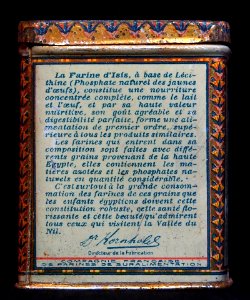 La Farine d'Isis, à base de Léci-
thine (Phosphate naturel des jaunes
d'œufs), constitue une nourriture
concentrée complète, comme le lait
et l'œuf, et par sa haute valeur
nutritive, son goût agréable et sa
digestibilité parfaite, forme une ali-
mentation de premier ordre, supé-
rieure à tous les produits similaires.
Les farines qui entrent dans sa
composition sont faites avec diffé-
rents grains provenant de la haute
Egypte, elles contiennent les ma-
tières azotées et les phosphates na-
turels en quantité considérable.
C'est surtout à la grande consom-
mation des farines de ces grains que
les enfants égyptiens doivent cette
constitution robuste, cette santé flo-
rissante et cette beauté qu'admirent
tous ceux qui visitent la Vallée du
Nil.
Directeur de la Fabrication
COMPAGNIE FRANÇAISE
DE FARINES DE SURALIMENTATION